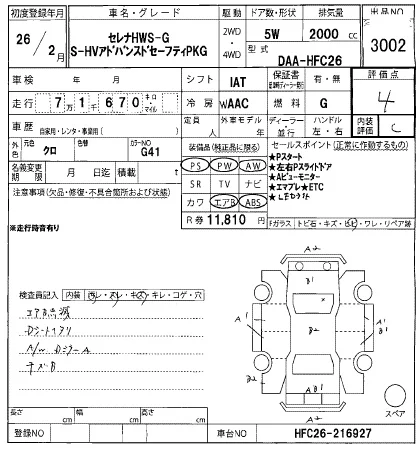 初度登録年月 車名・グレード 駆動 ドア数・形状 排気量 出品NO
26年/2月 セレナHWS-G 2WD・4WD 5W 2000cc 3002
S-HVアドバンスドセーフティPKG 型式 DAA-HFC26
車検 年 月 シフト IAT 保証書 有・無 評価点 4
走行 7万1千670 キロ・マイル 冷房 WAAC 燃料 G 内装評価 C
車歴 自家用・レンタ・事業用( ) 定員 人 外車モデル 年 ディーラー・並行 ハンドル 左・右
外色 元色 クロ 色替 カラーNO G41 装備品(純正品に限る) セールスポイント(正常に作動するもの)
名義変更期限 月 日 積載 t PS PW AW ★Pスタート
注意事項(欠品・修復・不具合箇所および状態) SR TV ナビ ★左右Pスライドドア
カワ エアB ABS ★Aビューモニター
★エマブレ★ETC
★LEDライト
※走行時音有り R券 11,810円 Fガラス トビ石・キズ・ヒビ・ワレ・リペア跡
A2
B1
検査員記入 内装 汚レ・スレ・キズ・キレ・コゲ・穴
エアB点滅
Dシートスワリ
A/W Dミラー A
キズB
A1 B2 A1
B2 B2
A2 B1
スペア
長さ cm 幅 cm 高さ cm
登録NO 車台NO HFC26-216927